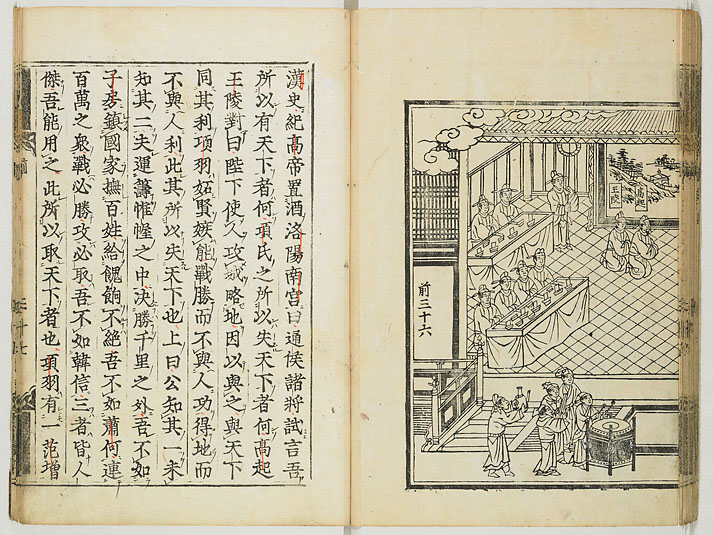 高起
王陵
前三十六
漢史紀高帝置酒洛陽南宮曰通侯諸將試言吾
所以有天下者何項氏之所以失天下者何高起
王陵對曰陛下使人攻城略地因以與之與天下
同其利項羽妬賢嫉能戰勝而不與人功得地而
不與人利此其所以失天下也上曰公知其一未
知其二夫運籌帷幄之中決勝千里之外吾不如
子房鎮國家撫百姓給餽餉不絕吾不如蕭何連
百萬之衆戰必勝攻必取吾不如韓信三者皆人
傑吾能用之此所以取天下者也項羽有一范增